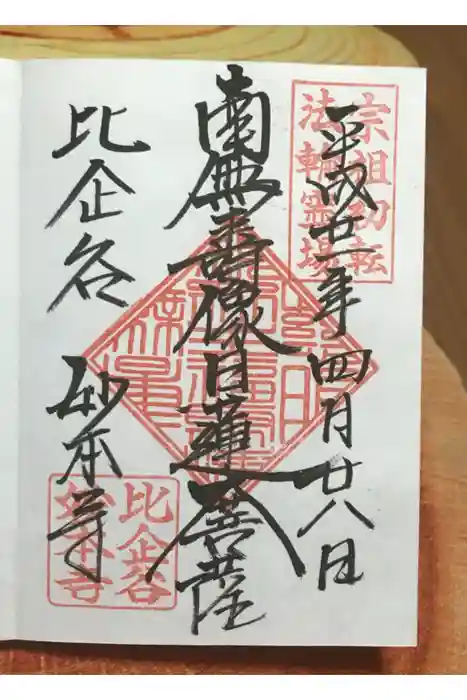 宗祖初転
法輪霊場
平成廿一年四月廿八日
南無壽像日蓮大菩薩
比企谷 妙本寺
比企谷
妙本寺